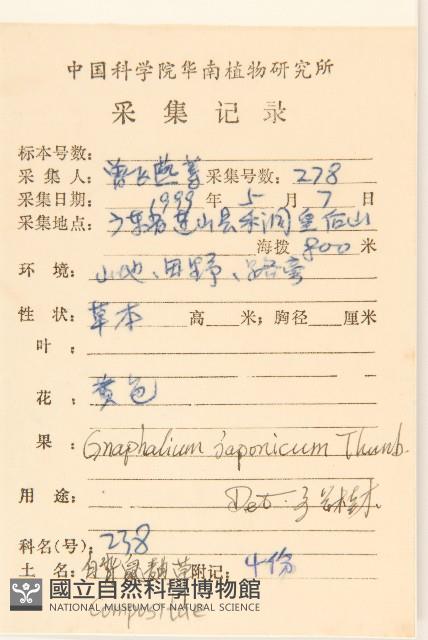 中国科学院华南植物研究所
采集记录
标本号数:
采集人: 曾长燕等 采集号数: 278
采集日期: 1999 年 5 月 7 日
采集地点: 广东省连山县禾洞皇后山
海拨 800 米
环境: 山地、田野、路旁
性状: 草本 高 米; 胸径 厘米
叶:
花: 黄色
果: Gnaphalium japonicum Thunb.
用途: Det.
科名(号): 238
土名: 白背鼠麹草 附记: 4份
Compositae
國立自然科學博物館
NATIONAL MUSEUM OF NATURAL SCIENCE